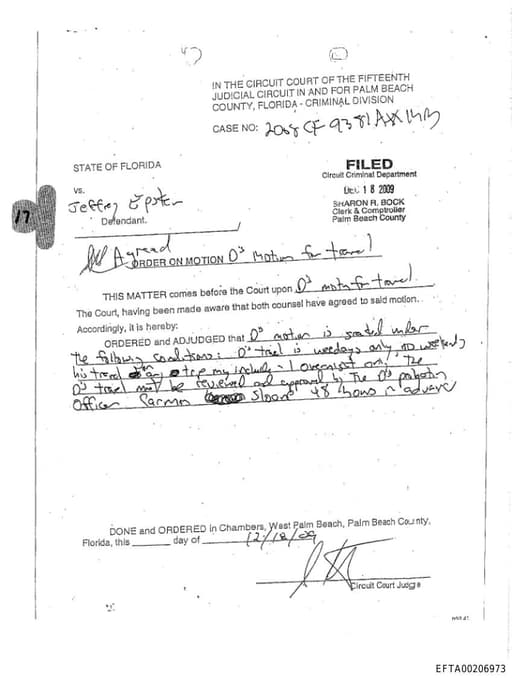 IN THE CIRCUIT COURT OF THE FIFTEENTH
JUDICIAL CIRCUIT IN AND FOR PALM BEACH
COUNTY, FLORIDA - CRIMINAL DIVISION
CASE NO: 2008 CF 9381 AXX MB
STATE OF FLORIDA
FILED
Circuit Criminal Department
DEC 18 2009
SHARON R. BOCK
Clerk & Comptroller
Palm Beach County
vs.
Jeffrey Epstein
Defendant.
17
Agreed
ORDER ON MOTION D's Motion for travel
THIS MATTER comes before the Court upon D's motn for travel.
The Court, having been made aware that both counsel have agreed to said motion.
Accordingly, it is hereby:
ORDERED and ADJUDGED that D's motion is granted under
the following conditions: D's travel is weekdays only no weekends
his travel on any trip may include 1 overnight only. The
D's travel must be reviewed and approved by the D's probation
Officer Carmen Sloane 48 hours in advance
DONE and ORDERED in Chambers, West Palm Beach, Palm Beach County,
Florida, this ______ day of 12/18/09
Circuit Court Judge
EFTA00206973